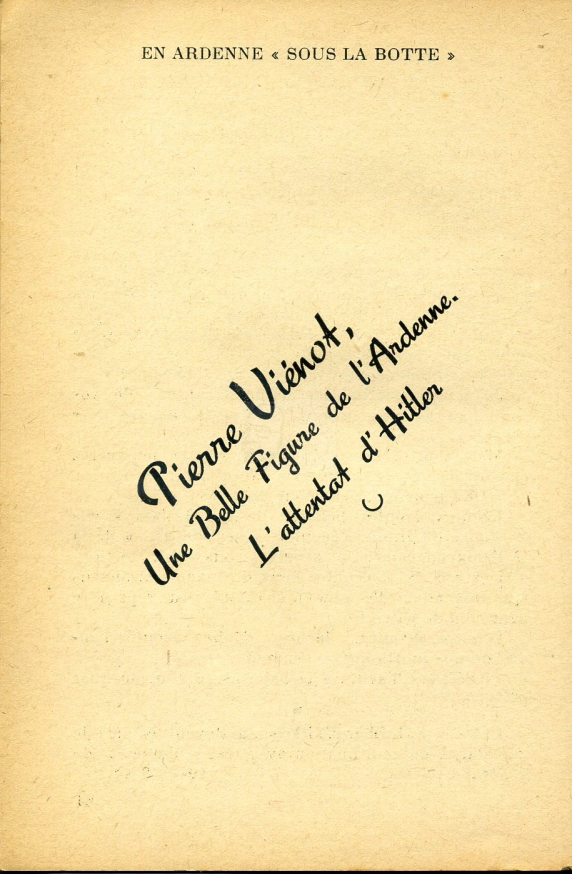 EN ARDENNE « SOUS LA BOTTE »
Pierre Viénot,
Une Belle Figure de l'Ardenne.
L'attentat d'Hitler